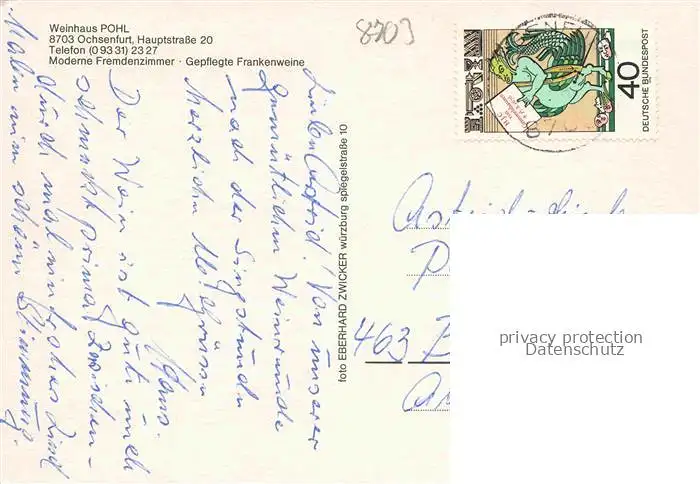 Weinhaus POHL
8703 Ochsenfurt, Hauptstraße 20
Telefon (0 93 31) 23 27
Moderne Fremdenzimmer · Gepflegte Frankenweine
8703
40
DEUTSCHE BUNDESPOST
foto EBERHARD ZWICKER würzburg spiegelstraße 10
Liebe Astrid! Von unserer
gemütlichen Weinrunde
nach der Singstunde
herzliche
Hans.
Der Wein ist gut und
schmeckt prima. Zwischen-
durch mal ein frohes Lied
nun schöne Stimmung.
Astrid
463
privacy protection
Datenschutz